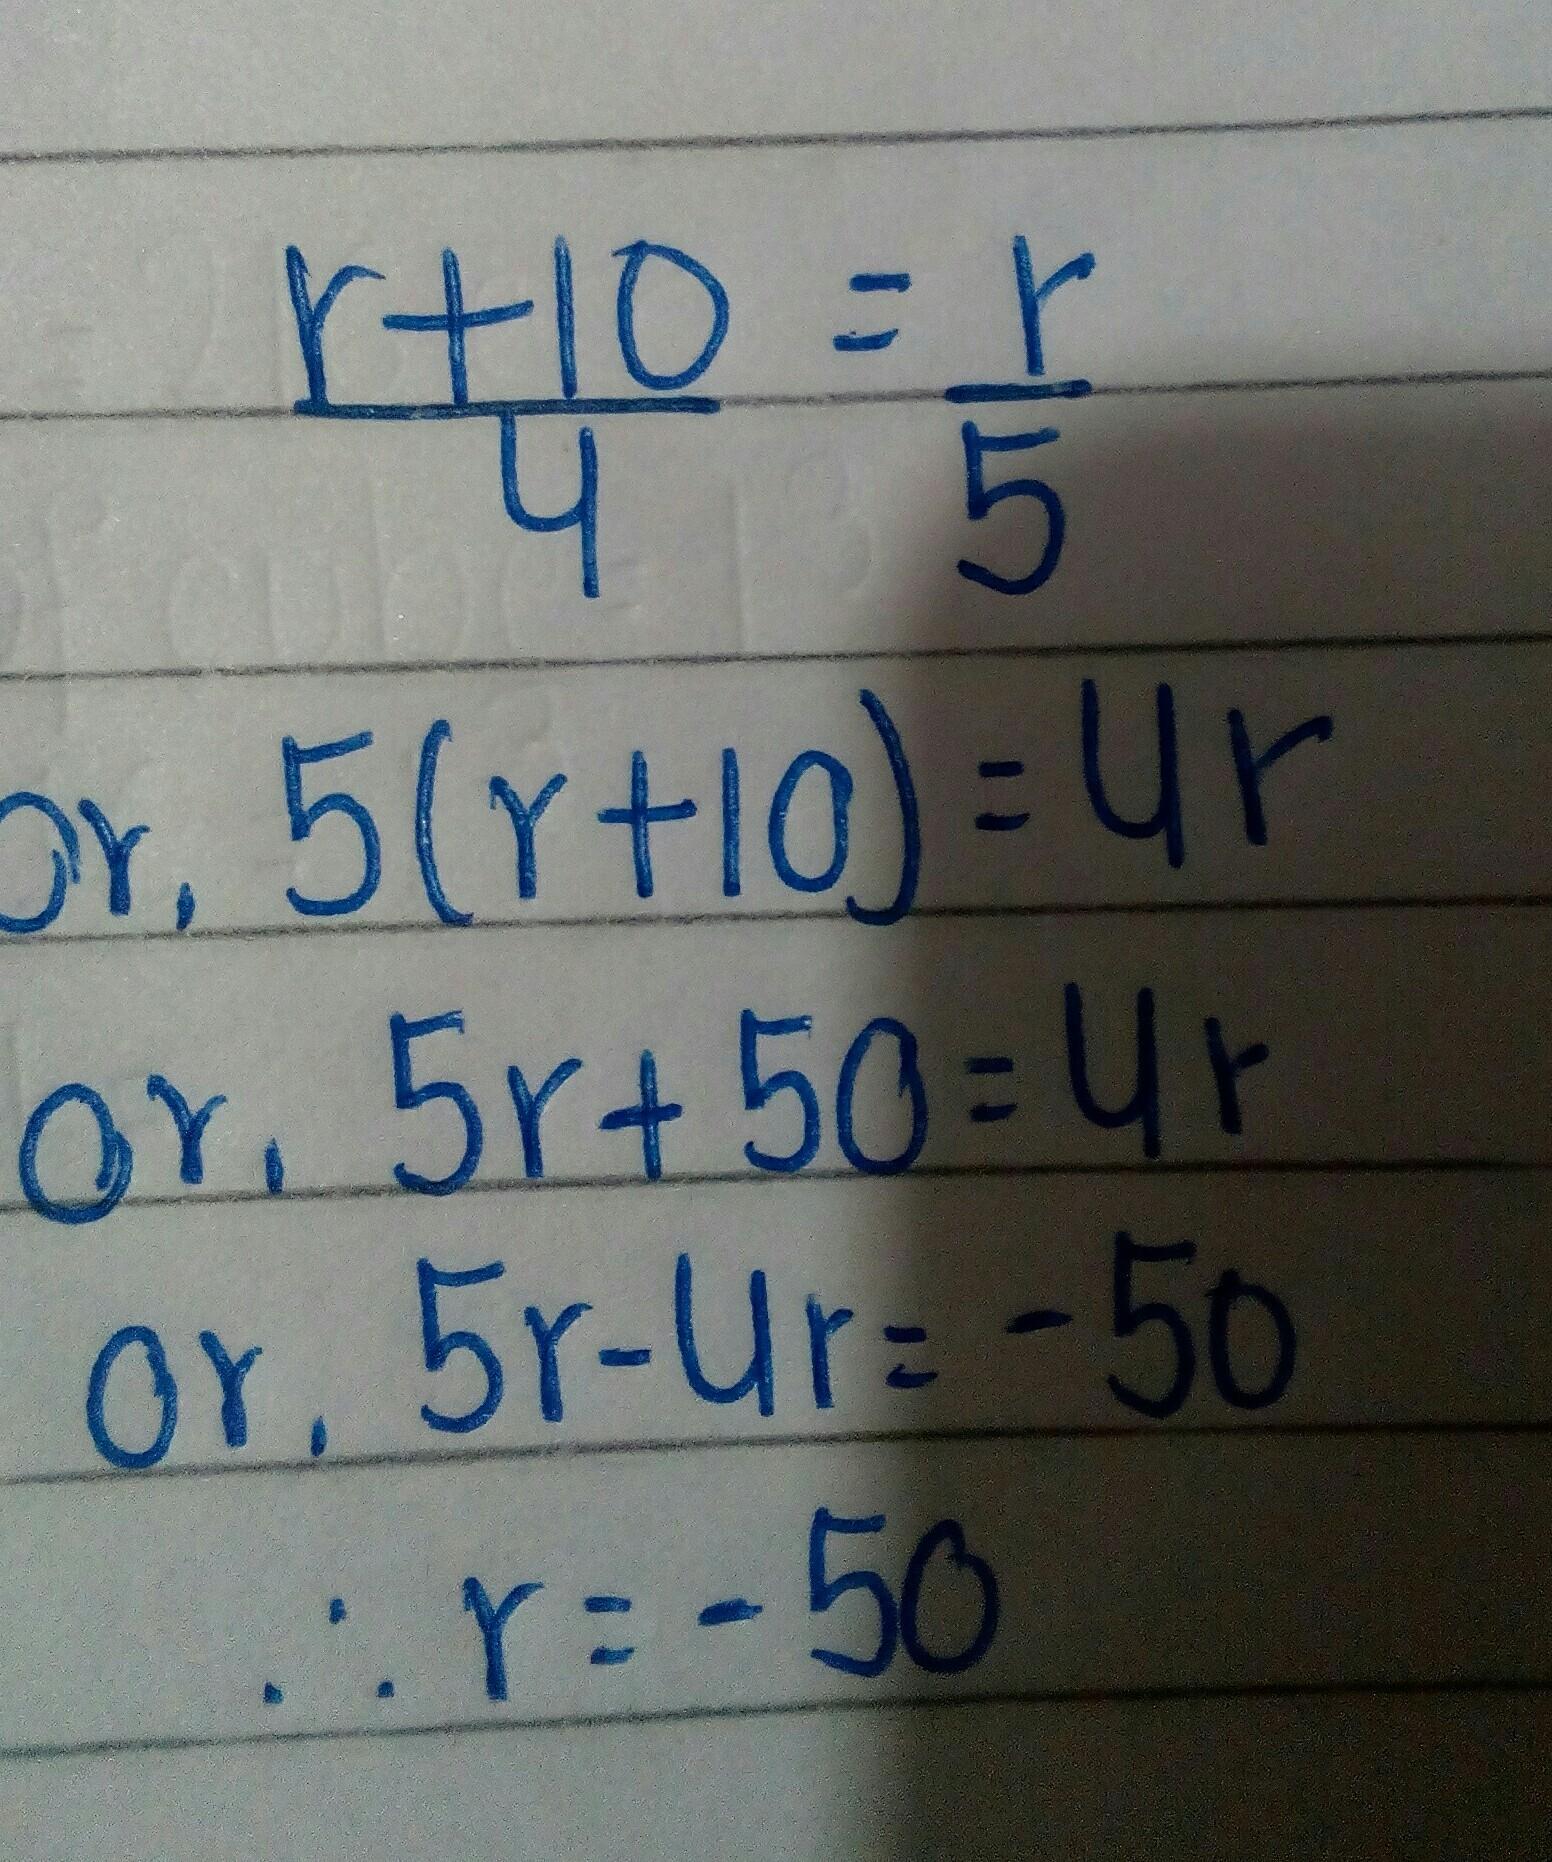 r+10/4 = r/5
or, 5(r+10)=4r
or, 5r+50=4r
or, 5r-4r=-50
∴ r=-50